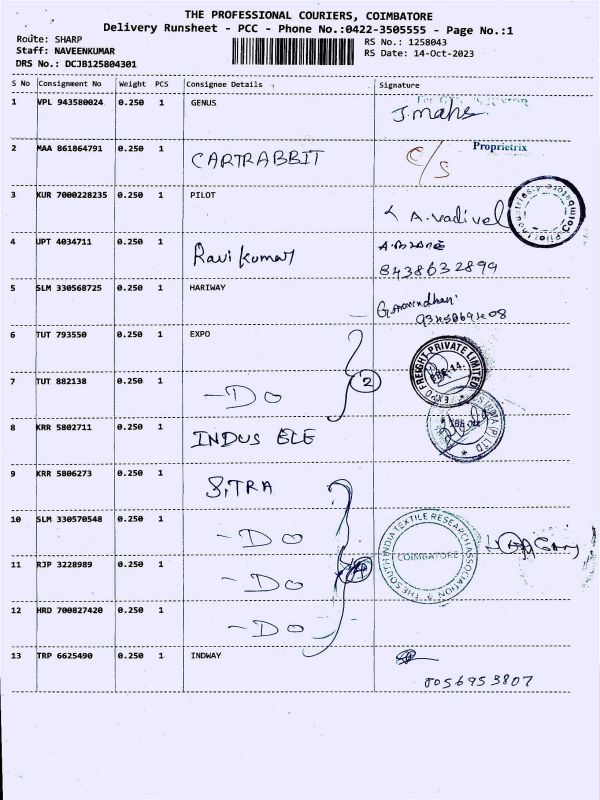 THE PROFESSIONAL COURIERS, COIMBATORE
Delivery Runsheet - PCC - Phone No.:0422-3505555 - Page No.:1
Route: SHARP
Staff: NAVEENKUMAR
DRS No.: DCJB125804301
RS No.: 1258043
RS Date: 14-Oct-2023
S No Consignment No Weight PCS Consignee Details Signature
1 VPL 943580024 0.250 1 GENUS J. mahe
2 MAA 861864791 0.250 1 CARTRABBIT C/S Proprietrix
3 KUR 7000228235 0.250 1 PILOT A.Vadivel
Pilot Industries Coimbatore
4 UPT 4034711 0.250 1 Ravi Kumar
8438632899
5 SLM 330568725 0.250 1 HARIWAY G.Aravindhan
6 TUT 793550 0.250 1 EXPO
EXPO FREIGHT PRIVATE LIMITED
7 TUT 882138 0.250 1 -DO 2
8 KRR 5802711 0.250 1 INDUS ELE
9 KRR 5806273 0.250 1 SITRA
10 SLM 330570548 0.250 1 -DO
THE SOUTH INDIA TEXTILE RESEARCH ASSOCIATION
COIMBATORE
11 RJP 3228989 0.250 1 -DO
12 HRD 700827420 0.250 1 -DO
13 TRP 6625490 0.250 1 INDWAY
8056953807